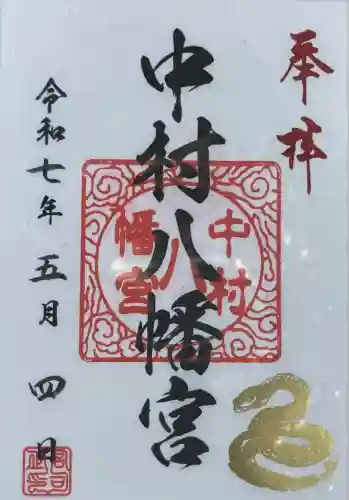 奉拝
中村八幡宮
中村
八
幡宮
令和七年五月四日